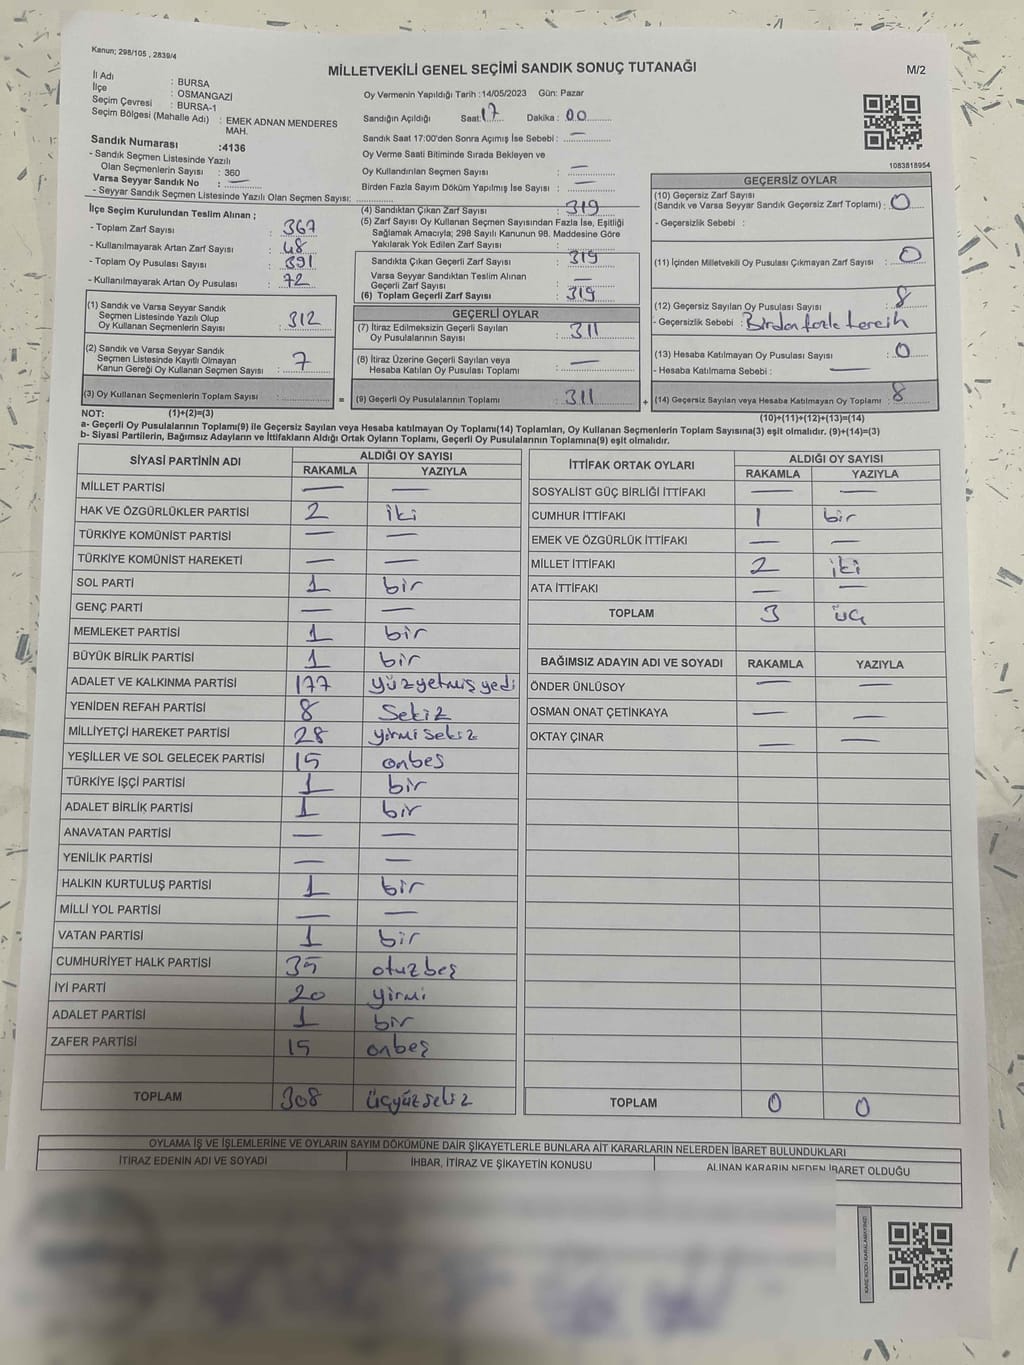 Kanun; 298/105 , 2839/4
MİLLETVEKİLİ GENEL SEÇİMİ SANDIK SONUÇ TUTANAĞI
M/2
İl Adı : BURSA
İlçe : OSMANGAZİ
Seçim Çevresi : BURSA-1
Seçim Bölgesi (Mahalle Adı) : EMEK ADNAN MENDERES MAH.
Sandık Numarası :4136
- Sandık Seçmen Listesinde Yazılı
Olan Seçmenlerin Sayısı : 360
Varsa Seyyar Sandık No : —
- Seyyar Sandık Seçmen Listesinde Yazılı Olan Seçmen Sayısı:
Oy Vermenin Yapıldığı Tarih :14/05/2023 Gün: Pazar
Sandığın Açıldığı Saat: 17 Dakika : 00
Sandık Saat 17:00'den Sonra Açımış İse Sebebi : —
Oy Verme Saati Bitiminde Sırada Bekleyen ve
Oy Kullandırılan Seçmen Sayısı : —
Birden Fazla Sayım Döküm Yapılmış İse Sayısı : —
1083818954
İlçe Seçim Kurulundan Teslim Alınan ;
- Toplam Zarf Sayısı : 367
- Kullanılmayarak Artan Zarf Sayısı : 48
- Toplam Oy Pusulası Sayısı : 391
- Kullanılmayarak Artan Oy Pusulası : 72
(1) Sandık ve Varsa Seyyar Sandık
Seçmen Listesinde Yazılı Olup
Oy Kullanan Seçmenlerin Sayısı : 312
(2) Sandık ve Varsa Seyyar Sandık
Seçmen Listesinde Kayıtlı Olmayan
Kanun Gereği Oy Kullanan Seçmen Sayısı : 7
(3) Oy Kullanan Seçmenlerin Toplam Sayısı :
(4) Sandıktan Çıkan Zarf Sayısı : 319
(5) Zarf Sayısı Oy Kullanan Seçmen Sayısından Fazla İse, Eşitliği
Sağlamak Amacıyla; 298 Sayılı Kanunun 98. Maddesine Göre
Yakılarak Yok Edilen Zarf Sayısı :
Sandıkta Çıkan Geçerli Zarf Sayısı : 319
Varsa Seyyar Sandıktan Teslim Alınan
Geçerli Zarf Sayısı : —
(6) Toplam Geçerli Zarf Sayısı : 319
GEÇERLİ OYLAR
(7) İtiraz Edilmeksizin Geçerli Sayılan
Oy Pusulalarının Sayısı : 311
(8) İtiraz Üzerine Geçerli Sayılan veya
Hesaba Katılan Oy Pusulası Toplamı : —
= (9) Geçerli Oy Pusulalarının Toplamı : 311
GEÇERSİZ OYLAR
(10) Geçersiz Zarf Sayısı
(Sandık ve Varsa Seyyar Sandık Geçersiz Zarf Toplamı) : 0
- Geçersizlik Sebebi :
(11) İçinden Milletvekili Oy Pusulası Çıkmayan Zarf Sayısı : 0
(12) Geçersiz Sayılan Oy Pusulası Sayısı : 8
- Geçersizlik Sebebi : Birden fazla tercih
(13) Hesaba Katılmayan Oy Pusulası Sayısı : 0
- Hesaba Katılmama Sebebi : —
+ (14) Geçersiz Sayılan veya Hesaba Katılmayan Oy Toplamı : 8
NOT: (1)+(2)=(3) (10)+(11)+(12)+(13)=(14)
a- Geçerli Oy Pusulalarının Toplamı(9) ile Geçersiz Sayılan veya Hesaba Katılmayan Oy Toplamı(14) Toplamları, Oy Kullanan Seçmenlerin Toplam Sayısına(3) eşit olmalıdır. (9)+(14)=(3)
b- Siyasi Partilerin, Bağımsız Adayların ve İttifakların Aldığı Ortak Oyların Toplamı, Geçerli Oy Pusulalarının Toplamına(9) eşit olmalıdır.
SİYASİ PARTİNİN ADI ALDIĞI OY SAYISI
RAKAMLA YAZIYLA
MİLLET PARTİSİ — —
HAK VE ÖZGÜRLÜKLER PARTİSİ 2 iki
TÜRKİYE KOMÜNİST PARTİSİ — —
TÜRKİYE KOMÜNİST HAREKETİ — —
SOL PARTİ 1 bir
GENÇ PARTİ — —
MEMLEKET PARTİSİ 1 bir
BÜYÜK BİRLİK PARTİSİ 1 bir
ADALET VE KALKINMA PARTİSİ 177 yüzyetmişyedi
YENİDEN REFAH PARTİSİ 8 Sekiz
MİLLİYETÇİ HAREKET PARTİSİ 28 yirmi sekiz
YEŞİLLER VE SOL GELECEK PARTİSİ 15 onbeş
TÜRKİYE İŞÇİ PARTİSİ 1 bir
ADALET BİRLİK PARTİSİ 1 bir
ANAVATAN PARTİSİ — —
YENİLİK PARTİSİ — —
HALKIN KURTULUŞ PARTİSİ 1 bir
MİLLİ YOL PARTİSİ — —
VATAN PARTİSİ 1 bir
CUMHURİYET HALK PARTİSİ 35 otuzbeş
İYİ PARTİ 20 yirmi
ADALET PARTİSİ 1 bir
ZAFER PARTİSİ 15 onbeş
TOPLAM 308 üçyüzsekiz
İTTİFAK ORTAK OYLARI ALDIĞI OY SAYISI
RAKAMLA YAZIYLA
SOSYALİST GÜÇ BİRLİĞİ İTTİFAKI — —
CUMHUR İTTİFAKI 1 bir
EMEK VE ÖZGÜRLÜK İTTİFAKI — —
MİLLET İTTİFAKI 2 iki
ATA İTTİFAKI — —
TOPLAM 3 üç
BAĞIMSIZ ADAYIN ADI VE SOYADI RAKAMLA YAZIYLA
ÖNDER ÜNLÜSOY — —
OSMAN ONAT ÇETİNKAYA — —
OKTAY ÇINAR — —
TOPLAM 0 0
OYLAMA İŞ VE İŞLEMLERİNE VE OYLARIN SAYIM DÖKÜMÜNE DAİR ŞİKAYETLERLE BUNLARA AİT KARARLARIN NELERDEN İBARET BULUNDUKLARI
İTİRAZ EDENİN ADI VE SOYADI İHBAR, İTİRAZ VE ŞİKAYETİN KONUSU ALINAN KARARIN NEDEN İBARET OLDUĞU